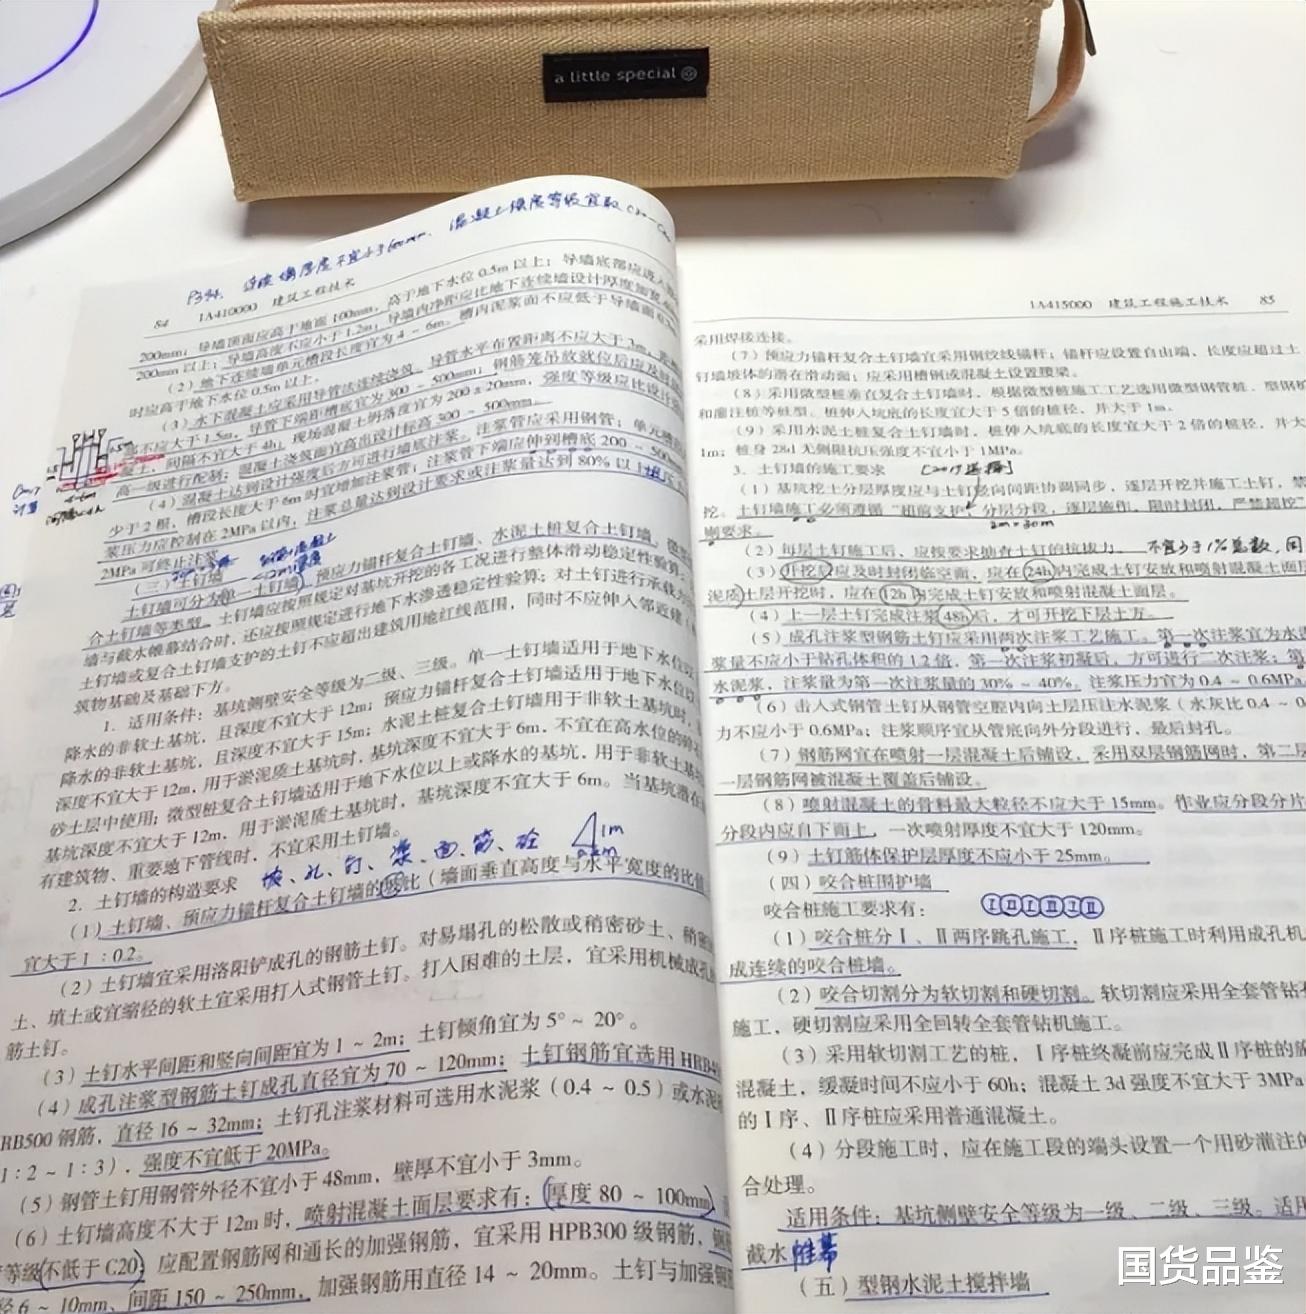 a little special
P394. 连续墙厚度不宜小于600mm. 混凝土强度等级宜取C30-C40
84 1A410000 建筑工程技术
200mm；导墙顶面应高于地面100mm，高于地下水位0.5m以上；导墙底部应进入
200mm以上；导墙高度不应小于1.2m；导墙内净距应比地下连续墙设计厚度加宽
（2）地下连续墙单元槽段长度宜为4～6m。槽内泥浆面不应低于导墙面
时应高于地下水位0.5m以上。
（3）水下混凝土应采用导管法连续浇筑。导管水平布置距离不应大于3m，
不应大于1.5m，导管下端距槽底宜为300～500mm；钢筋笼吊放就位后应及时
间隔不宜大于4h；现场混凝土坍落度宜为200±20mm，强度等级应比设计
高一级进行配制；混凝土浇筑面宜高出设计标高300～500mm。
（4）混凝土达到设计强度后方可进行墙底注浆。注浆管应采用钢管；单元槽段
少于2根，槽段长度大于6m时宜增加注浆管；注浆管下端应伸到槽底200～500mm
浆压力应控制在2MPa以内，注浆总量达到设计要求或注浆量达到80%以上
2MPa可终止注浆。
（三）土钉墙
土钉墙可分为单一土钉墙、预应力锚杆复合土钉墙、水泥土桩复合土钉墙、微型
合土钉墙等类型。土钉墙应按照规定对基坑开挖的各工况进行整体滑动稳定性验算；
墙与截水帷幕结合时，还应按照规定进行地下水渗透稳定性验算；对土钉进行承载力
土钉墙或复合土钉墙支护的土钉不应超出建筑用地红线范围，同时不应伸入邻近建（
筑物基础及基础下方。
1．适用条件：基坑侧壁安全等级为二级、三级。单一土钉墙适用于地下水位以
降水的非软土基坑，且深度不宜大于12m；预应力锚杆复合土钉墙适用于地下水位以
降水的非软土基坑，且深度不宜大于15m；水泥土桩复合土钉墙用于非软土基坑时，
深度不宜大于12m，用于淤泥质土基坑时，基坑深度不宜大于6m，不宜在高水位的碎石
砂土层中使用；微型桩复合土钉墙适用于地下水位以上或降水的基坑，用于非软土基
基坑深度不宜大于12m，用于淤泥质土基坑时，基坑深度不宜大于6m。当基坑潜在
有建筑物、重要地下管线时，不宜采用土钉墙。
2．土钉墙的构造要求
坡、孔、钉、浆、面、筋、砼
1m
（1）土钉墙、预应力锚杆复合土钉墙的坡比（墙面垂直高度与水平宽度的比值
宜大于1：0.2。
（2）土钉墙宜采用洛阳铲成孔的钢筋土钉。对易塌孔的松散或稍密砂土、稍密
土、填土或宜缩径的软土宜采用打入式钢管土钉。打入困难的土层，宜采用机械成孔
筋土钉。
（3）土钉水平间距和竖向间距宜为1～2m；土钉倾角宜为5°～20°。
（4）成孔注浆型钢筋土钉成孔直径宜为70～120mm；土钉钢筋宜选用HRB4
RB500钢筋，直径16～32mm；土钉孔注浆材料可选用水泥浆（0.4～0.5）或水泥
1：2～1：3），强度不宜低于20MPa。
（5）钢管土钉用钢管外径不宜小于48mm，壁厚不宜小于3mm。
（6）土钉墙高度不大于12m时，喷射混凝土面层要求有：厚度80～100mm，
等级不低于C20；应配置钢筋网和通长的加强钢筋，宜采用HPB300级钢筋，钢
径6～10mm、间距150～250mm，加强钢筋用直径14～20mm。土钉与加强钢
1A415000 建筑工程施工技术 85
采用焊接连接。
（7）预应力锚杆复合土钉墙宜采用钢绞线锚杆；锚杆应设置自由端、长度应超过土
钉墙坡体的潜在滑动面；应采用槽钢或混凝土设置腰梁。
（8）采用微型桩垂直复合土钉墙时，根据微型桩施工工艺选用微型钢管桩、型钢桩
和灌注桩等桩型。桩伸入坑底的长度宜大于5倍的桩径，并大于1m。
（9）采用水泥土桩复合土钉墙时，桩伸入坑底的长度宜大于2倍的桩径，并大
1m；桩身28d无侧限抗压强度不宜小于1MPa。
3．土钉墙的施工要求
（1）基坑挖土分层厚度应与土钉竖向间距协调同步，逐层开挖并施工土钉，禁
挖。土钉墙施工必须遵循“超前支护，分层分段，逐层施作，限时封闭，严禁超挖”
则要求。
20m~30m
（2）每层土钉施工后，应按要求抽查土钉的抗拔力。 不宜少于1%总数，
（3）开挖后应及时封闭临空面，应在24h内完成土钉安放和喷射混凝土面层
泥质土层开挖时，应在12h内完成土钉安放和喷射混凝土面层。
（4）上一层土钉完成注浆48h后，才可开挖下层土方。
（5）成孔注浆型钢筋土钉应采用两次注浆工艺施工。第一次注浆宜为水泥
浆量不应小于钻孔体积的1.2倍，第一次注浆初凝后，方可进行二次注浆；第
水泥浆，注浆量为第一次注浆量的30%～40%。注浆压力宜为0.4～0.6MPa
（6）击入式钢管土钉从钢管空腔内向土层压注水泥浆（水灰比0.4～0
力不应小于0.6MPa；注浆顺序宜从管底向外分段进行，最后封孔。
（7）钢筋网宜在喷射一层混凝土后铺设，采用双层钢筋网时，第二层
一层钢筋网被混凝土覆盖后铺设。
（8）喷射混凝土的骨料最大粒径不应大于15mm。作业应分段分片
分段内应自下而上，一次喷射厚度不宜大于120mm。
（9）土钉筋体保护层厚度不应小于25mm。
（四）咬合桩围护墙
咬合桩施工要求有：
Ⅰ Ⅱ Ⅰ Ⅱ Ⅰ Ⅱ
（1）咬合桩分Ⅰ、Ⅱ两序跳孔施工，Ⅱ序桩施工时利用成孔机
成连续的咬合桩墙。
（2）咬合切割分为软切割和硬切割。软切割应采用全套管钻
施工，硬切割应采用全回转全套管钻机施工。
（3）采用软切割工艺的桩，Ⅰ序桩终凝前应完成Ⅱ序桩的施
混凝土，缓凝时间不应小于60h；混凝土3d强度不宜大于3MPa
的Ⅰ序、Ⅱ序桩应采用普通混凝土。
（4）分段施工时，应在施工段的端头设置一个用砂灌注的
合处理。
适用条件：基坑侧壁安全等级为一级、二级、三级。适用
截水帷幕
（五）型钢水泥土搅拌墙
国货品鉴